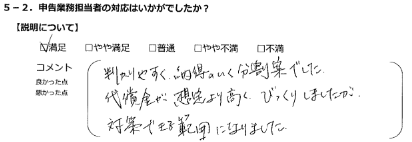 5-2. 申告業務担当者の対応はいかがでしたか？
【説明について】
☑満足 □やや満足 □普通 □やや不満 □不満
コメント
良かった点
悪かった点
判かりやすく、納得のいく分割案でした。
代償金が想定より高く、びっくりしましたが、
対策できる範囲になりました。